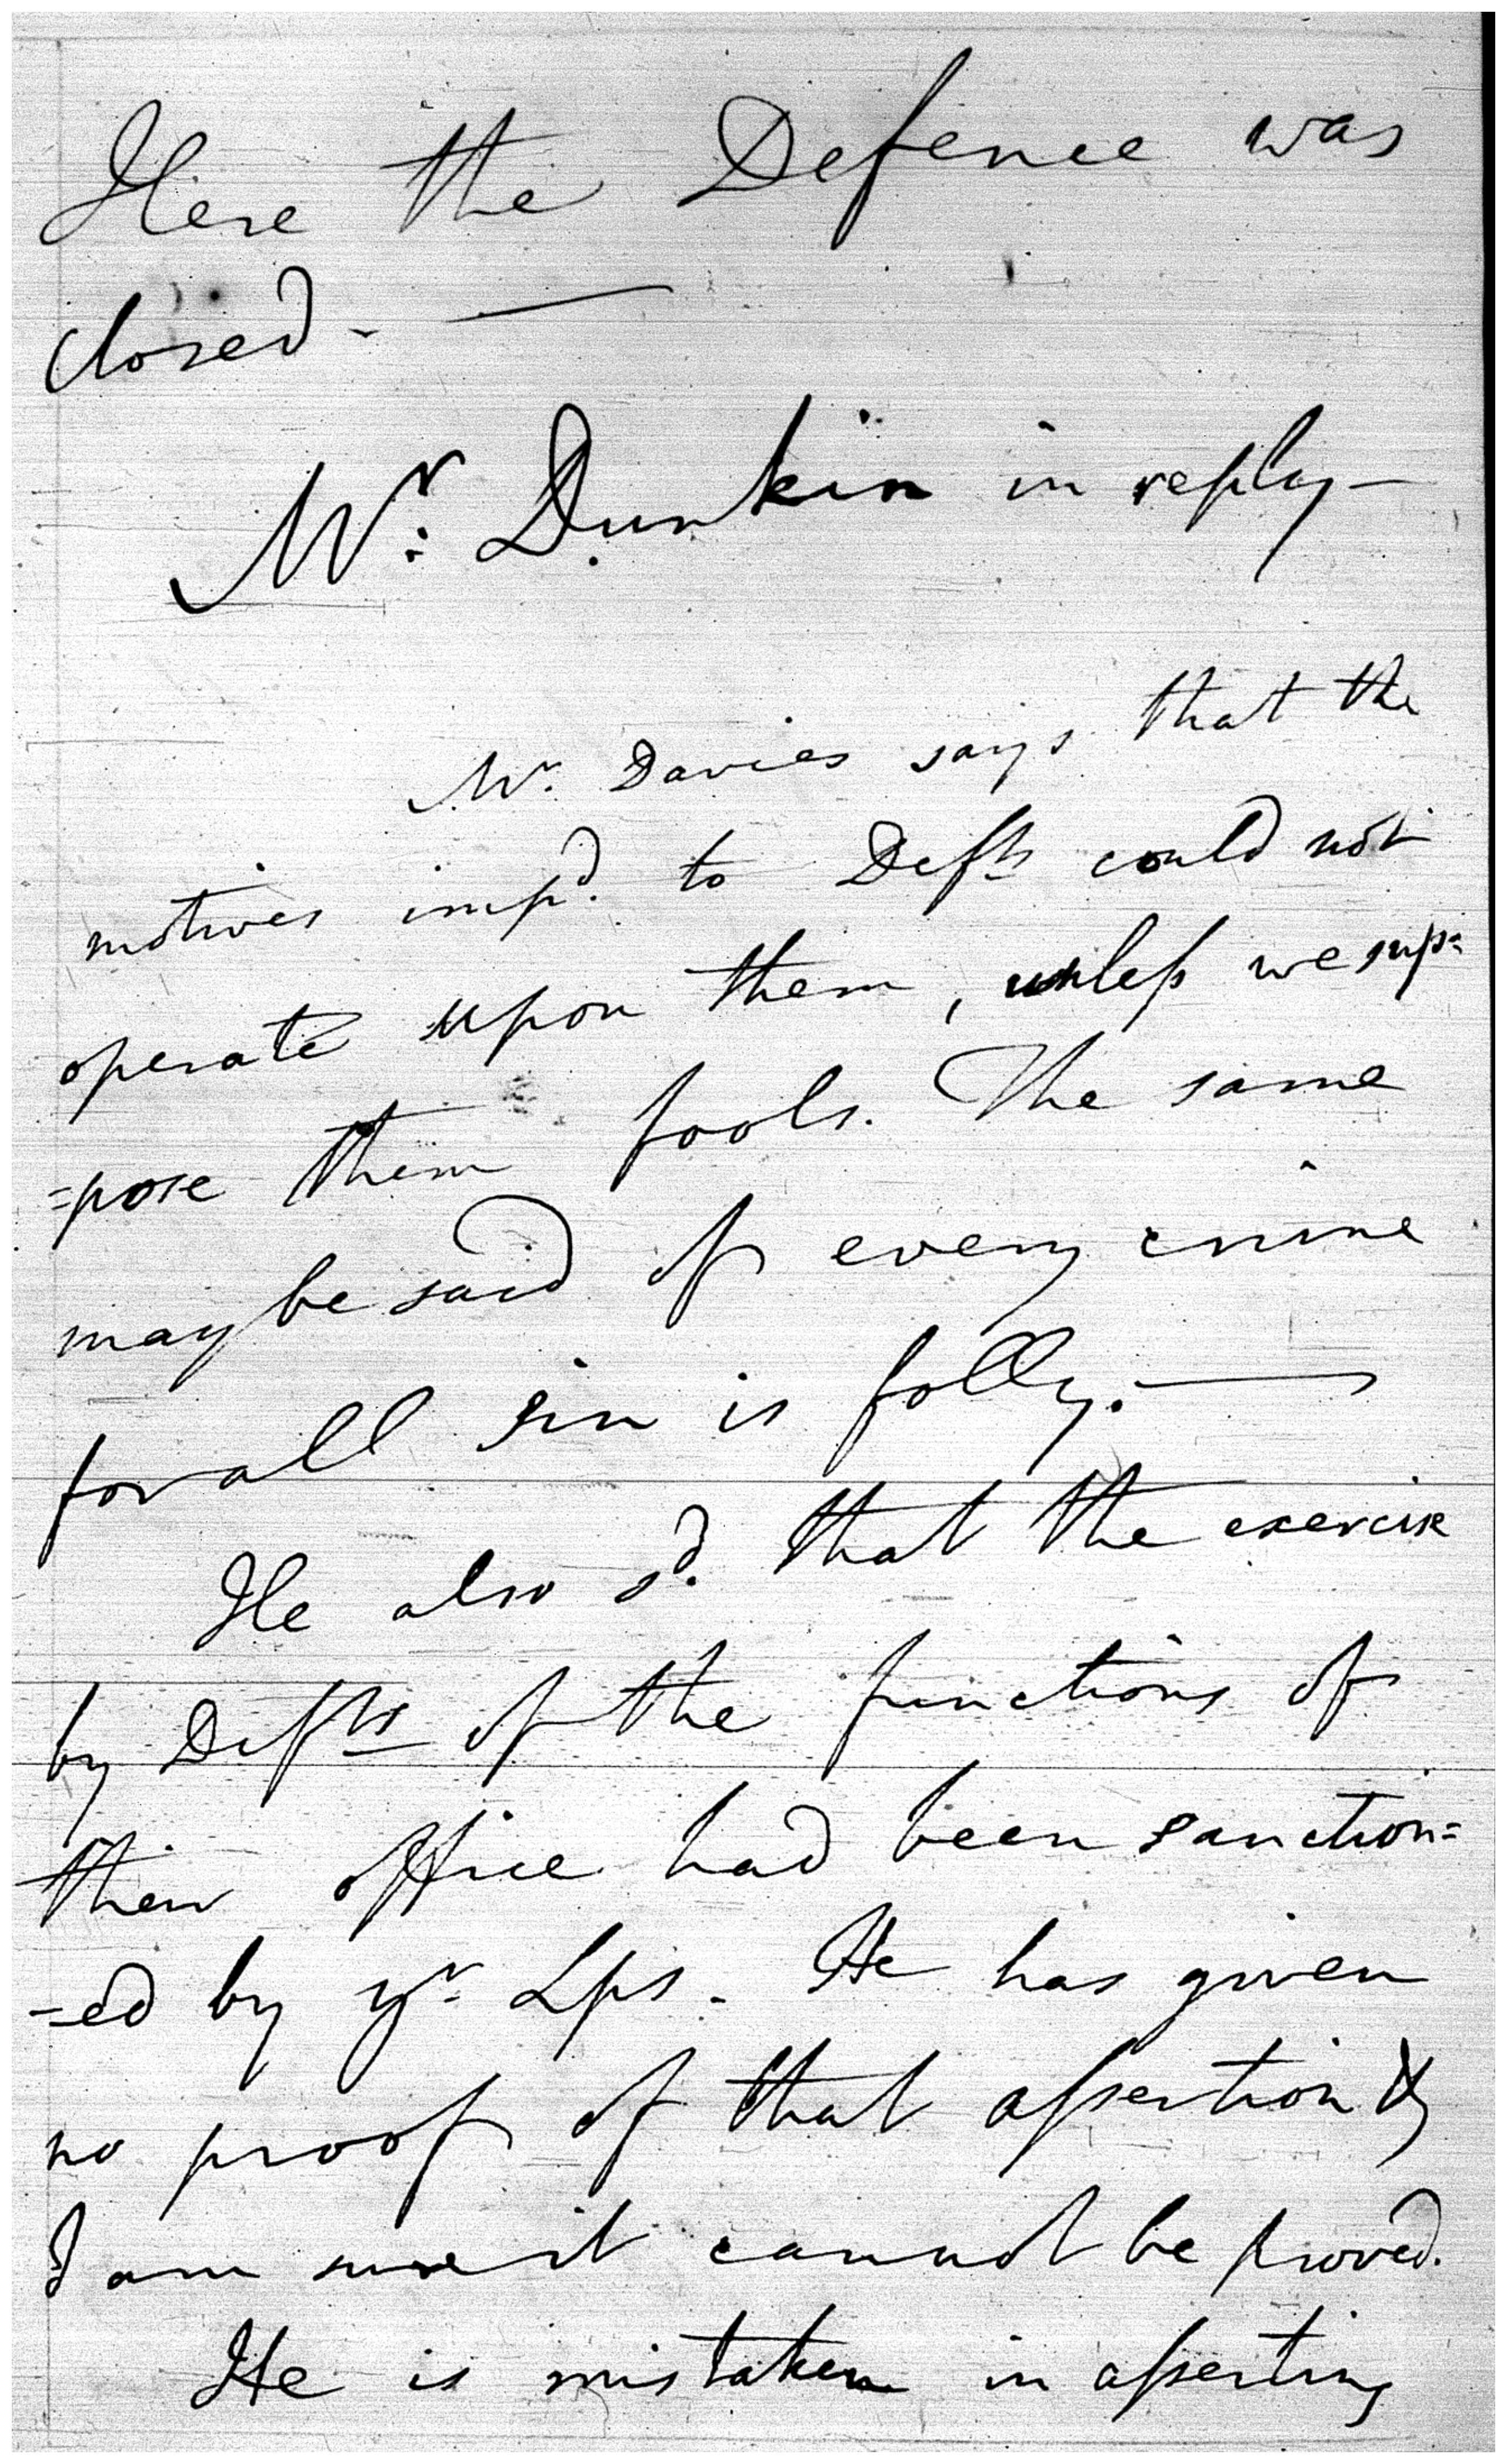 Here the Defence was
closed. —
Mr: Dunkin in reply —
Mr. Davies says that the
motives impd. to Defts could not
operate upon them, unless we sup=
=pose them fools. The same
may be said of every crime
for all sin is folly. —
He also sd. that the exercise
by Defts of the functions of
their office had been sanction=
=ed by yr. Lps. He has given
no proof of that assertion &
I am sure it cannot be proved.
He is mistaken in asserting